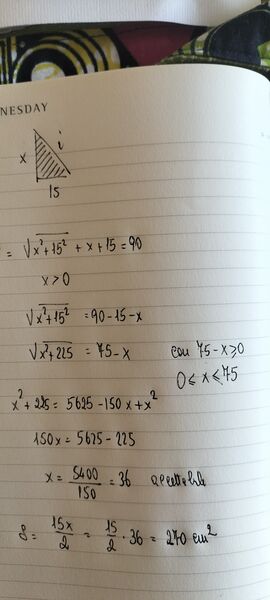 NESDAY
x
i
15
= √(x²+15²) + x + 15 = 90
x > 0
√(x²+15²) = 90 - 15 - x
√(x²+225) = 75 - x con 75 - x ≥ 0
0 ≤ x ≤ 75
x² + 225 = 5625 - 150x + x²
150x = 5625 - 225
x = 5400/150 = 36 accettabile
S = 15x/2 = 15/2 · 36 = 270 cm²